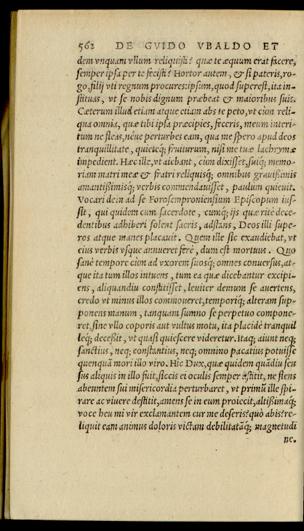 562 DE GVIDO VBALDO ET
dem vnquam vllum reliquisti? quæ te æquum erat facere,
semper ipsa per te fecisti? Hortor autem, & si pateris, ro-
go, filij vti regnum procures: ipsum, quod superest, ita in-
stituas, vt se nobis dignum præbeat & maioribus suis.
Cæterum illud etiam atque etiam abs te peto, vt cùm reli-
qua omnia, quæ tibi ipsa præcipies, feceris, meum interi-
tum ne fleas, néue perturbes eam, qua me spero apud deos
tranquillitate, quieteq; fruiturum, nisi me tuæ lachrymæ
impedient. Hæc ille, vt aiebant, cùm dixisset, suiq; memo-
riam matri meæ & fratri reliquisq; omnibus grauissimis
amantissimisq; verbis commendauisset, paulum quieuit.
Vocari dein ad se Forosemproniensium Episcopum ius-
sit, qui quidem cum sacerdote, cumq; ijs quæ ritè dece-
dentibus adhiberi solent sacris, adstans, Deos illi supe-
ros atque manes placauit. Quem ille sic exaudiebat, vt
eius verbis vsque annueret ferè, dum est mortuus. Quo
sanè tempore cùm ad vxorem suosq; omnes conuersus, at-
que ita tum illos intuens, tum ea quæ dicebantur excipi-
ens, aliquandiu constitisset, leuiter demum se auertens,
credo vt minus illos commoueret, temporiq; alteram sup-
ponens manum, tanquam somno se perpetuo compone-
ret, sine vllo corporis aut vultus motu, ita placidè tranquil
leq; decessit, vt quasi quiescere videretur. Itaq; aiunt neq;
sanctius, neq; constantius, neq; omnino pacatius potuisse
quenquã mori illo viro. Hic Dux, quæ quidem quãdiu sen
sus aliquis in illo fuit, siccis ei oculis semper astitit, ne flens
abeuntem sui misericordia perturbaret, vt primũ ille spi-
rare ac viuere destitit, amens se in eum proiecit, altissimaq;
voce heu mi vir exclamantem cur me deseris? quò abis? re-
liquit eam animus doloris victam debilitatãq; magnitudi
ne.